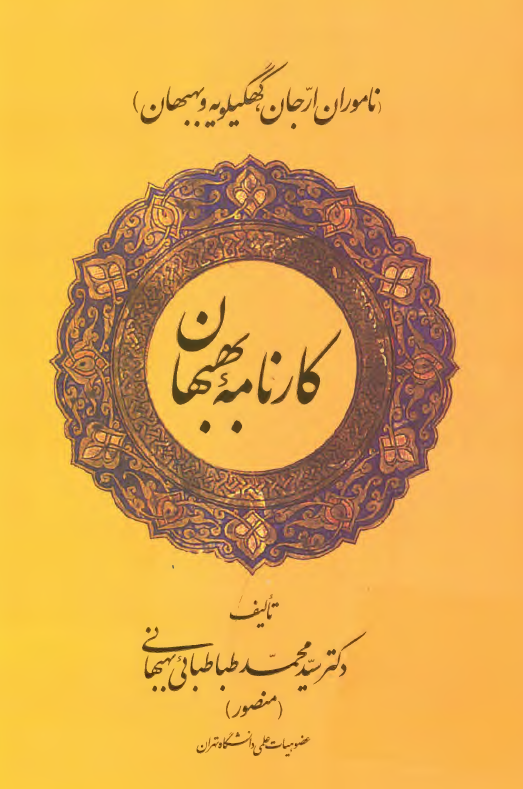 (ناموران ارّجان، کهگیلویه و بهبهان)
کارنامهٔ بهبهان
تألیف
دکتر سیّد محمّد طباطبائی بهبهانی
(منصور)
عضو هیات علمی دانشگاه تهران